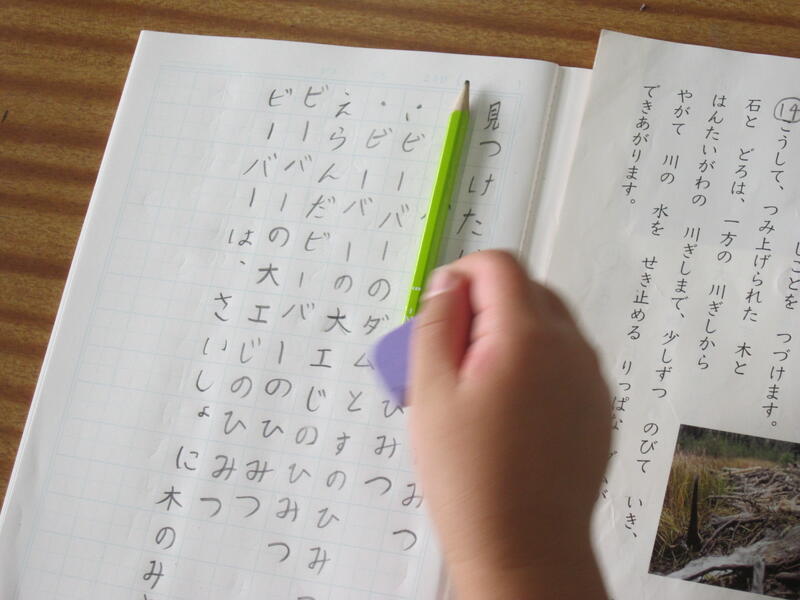 しごとを つづけます。
⑭こうして、つみ上げられた 木と
石と どろは、一方の 川ぎしから
はんたいがわの 川ぎしまで、少しずつ のびて いき、
やがて 川の 水を せき止める りっぱな
できあがります。
見つけた
ひみつ
ビーバーのダムとすのひみつ
・ビーバーの大エじのひみつ
えらんだビーバーのひみつ
ビーバーの大エじのひみつ
ビーバーは、さいしょに木のみ